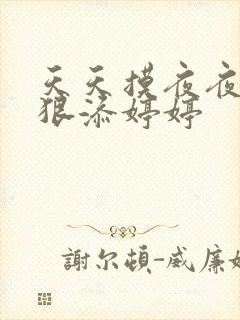 天天摸夜夜
狠添婷婷
謝尔頓-威廉